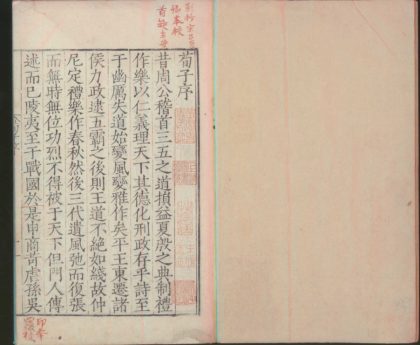 荀子序
昔周公稽首三五之道損益夏殷之典制禮
作樂以仁義理天下其德化刑政存乎詩至
于幽厲失道始變風變雅作矣平王東遷諸
侯力政逮五霸之後則王道不絶如綫故仲
尼定禮樂作春秋然後三代遺風弛而復張
而無時無位功烈不得被于天下但門人傳
述而已陵夷至于戰國於是申商苛虐孫吳